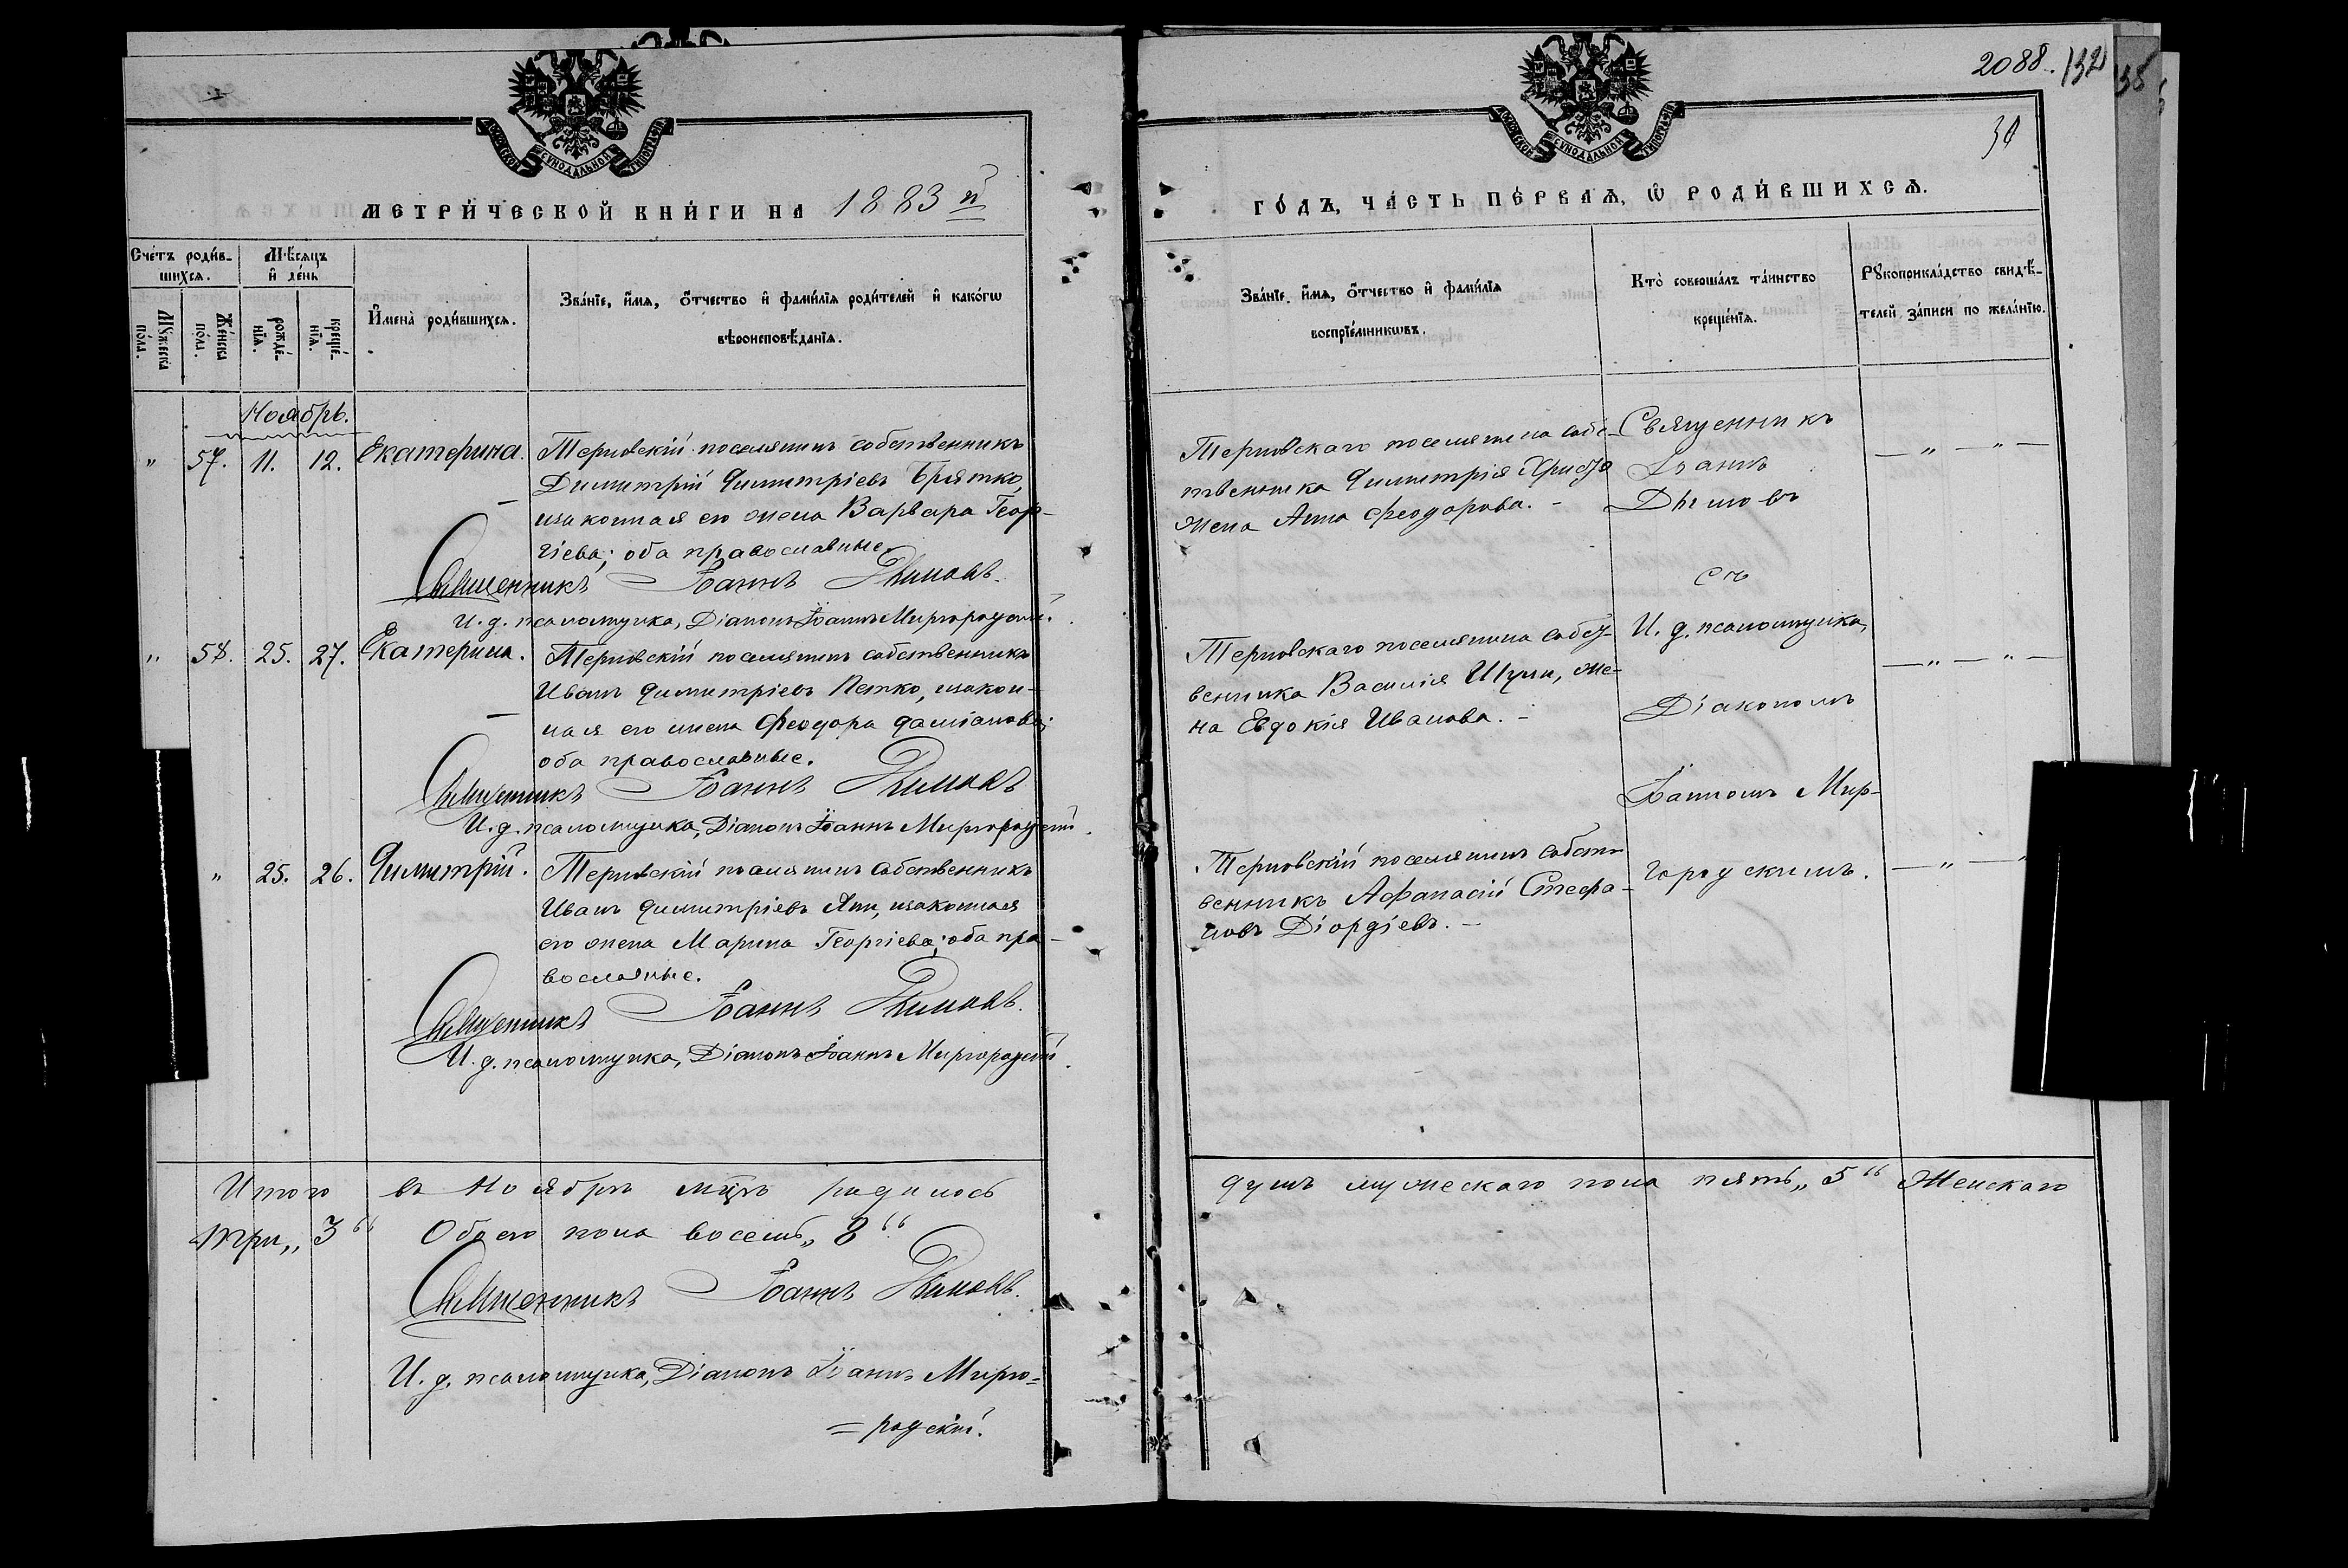 2088. 132
38
30
МОСКОВСКОЙ СѴНОДАЛЬНОЙ ТИПОГРАФІИ
МОСКОВСКОЙ СѴНОДАЛЬНОЙ ТИПОГРАФІИ
МЕТРИ́ЧЕСКОЙ КНИ́ГИ НА 1883 й
ГО́ДЪ, ЧА́СТЬ ПЕ́РВАѦ, Ѡ РОДИ́ВШИХСѦ.
Сче́тъ роди́в-
шихсѧ.
Мѣ́сѧцъ
и де́нь
Мꙋ́жеска
по́ла.
Же́нска
по́ла.
рожде́-
нїѧ.
креще́-
нїѧ.
И҆мена̀ роди́вшихсѧ.
Зва́нїе, и҆́мѧ, ѻ҆́тчество и҆ фами́лїѧ роди́телей и҆ како́гѡ
вѣроисповѣ́данїѧ.
Зва́нїе, и҆́мѧ, ѻ҆́тчество и҆ фами́лїѧ
воспрїе́мникѡвъ.
Кто̀ соверша́лъ та́инство
креще́нїѧ.
Рꙋкоприкла́дство свидѣ́-
телей за́писи по жела́нїю.
Ноябрь.
" 57. 11. 12. Екатерина. Терновскій поселянинъ собственникъ
Димитрій Димитріевъ Брятко,
изаконная его жена Варвара Геор-
гіева; оба православные.
Священникъ Іоаннъ Димовъ.
И. д. псаломщика, Діаконъ Іоаннъ Миргородскій.
Терновскаго поселянина собс-
твенника Димитрія Христо
жена Анна Феодорова. -
Священникъ
Іоаннъ
Димовъ
съ
— " — " —
" 58. 25. 27. Екатерина. Терновскій поселянинъ собственникъ
Иванъ Димитріевъ Петко, изакон-
ная его жена Феодора Даміанова;
оба православные.
Священникъ Іоаннъ Димовъ
И. д. псаломщика, Діаконъ Іоаннъ Миргородскій.
Терновскаго поселянина собст-
венника Василія , же-
на Евдокія Иванова. -
И. д. псаломщика,
Діакономъ
Іоанномъ Мир-
городскимъ.
— " — " —
" 25. 26. Димитрій. Терновскій поселянинъ собственникъ
Иванъ Димитріевъ Яни, изаконная
его жена Марина Георгіева; оба пра-
вославные.
Священникъ Іоаннъ Димовъ.
И. д. псаломщика, Діаконъ Іоаннъ Миргородскій.
Терновскій поселянинъ собст-
венникъ Афанасій Стефа-
новъ Діордіевъ. -
— " — "
Итого въ Ноябрѣ мцѣ родилось
душъ мужескаго пола пять „5“ Женскаго
три „3“ Обоего пола восемь „8“
Священникъ Іоаннъ Димовъ.
И. д. псаломщика, Діаконъ Іоаннъ Мирго=
= родскій.